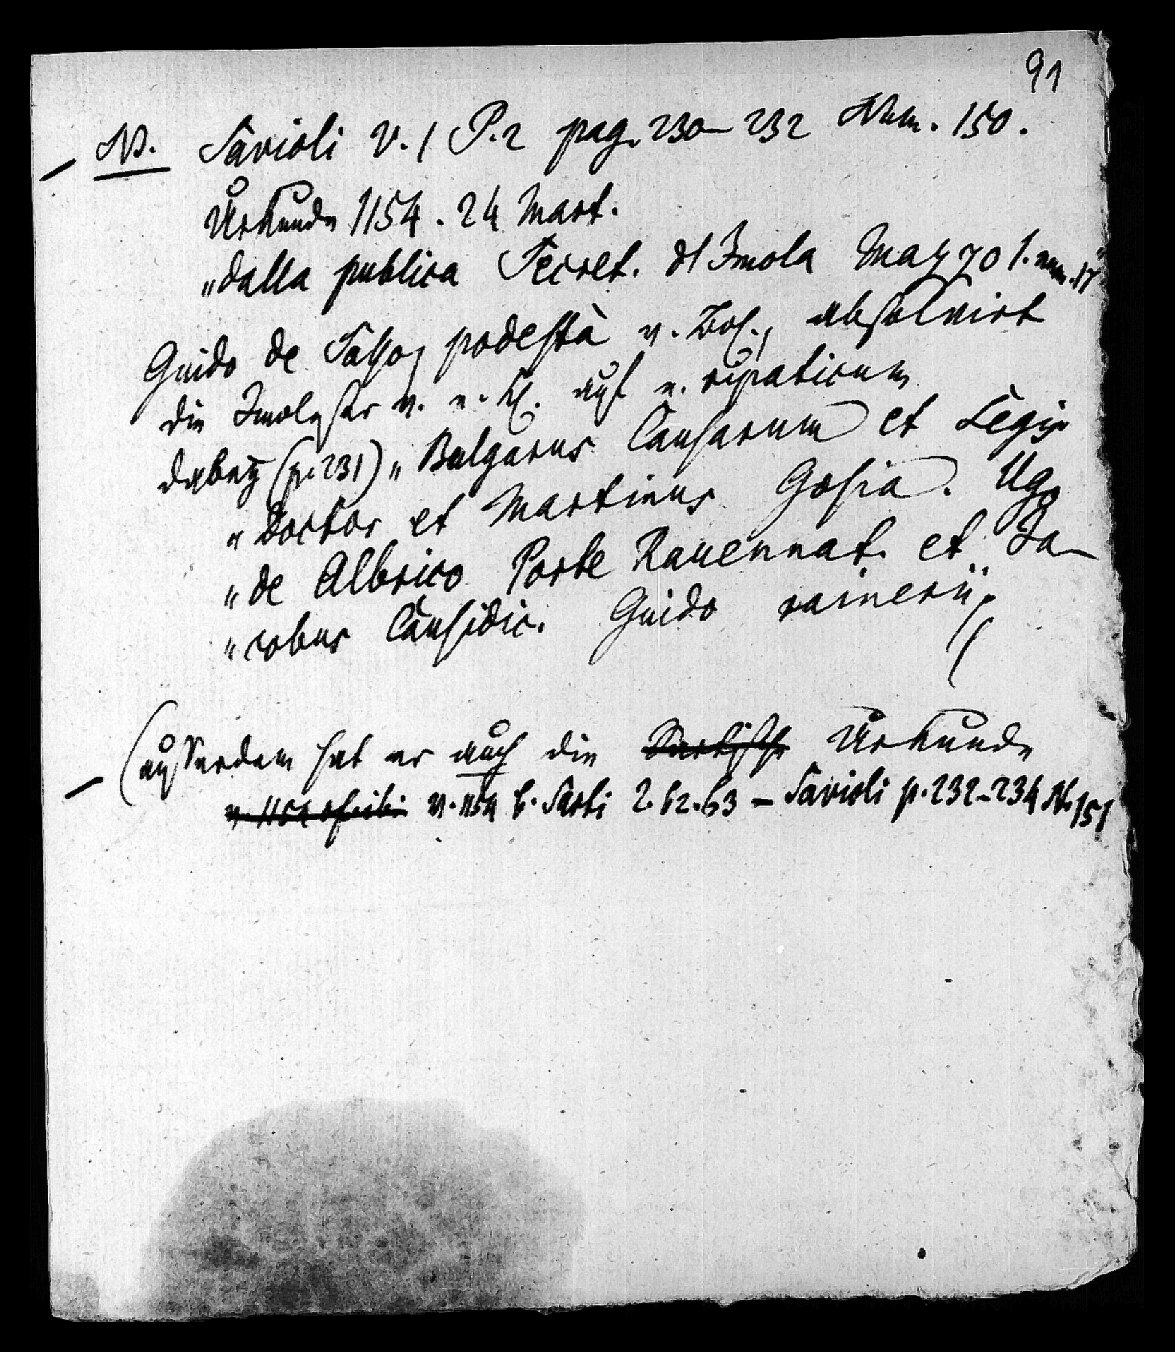 91
NB. Savioli V. 1 P. 2 pag. 230–232 Num. 150.
Urkunde 1154. 24 Mart.
„dalla publica Secret. d'Imola Maz 70 1. num. 17"
Guido de Sasso, podestà v. Bol., absolvirt
die Imoleser v. auf ripaticum
dabey (p. 231) „Bulgarus Causarum et Legis
„Doctor et Martinus Gosia. Ugo
„de Albrico Porte Ravennat. et Ja-
„cobus Causidic. Guido rainerii
(außerdem hat er auch die Sartische Urkunde
v. 1154 b. Sarti 2. 62. 63 – Savioli p. 232–234 N. 151